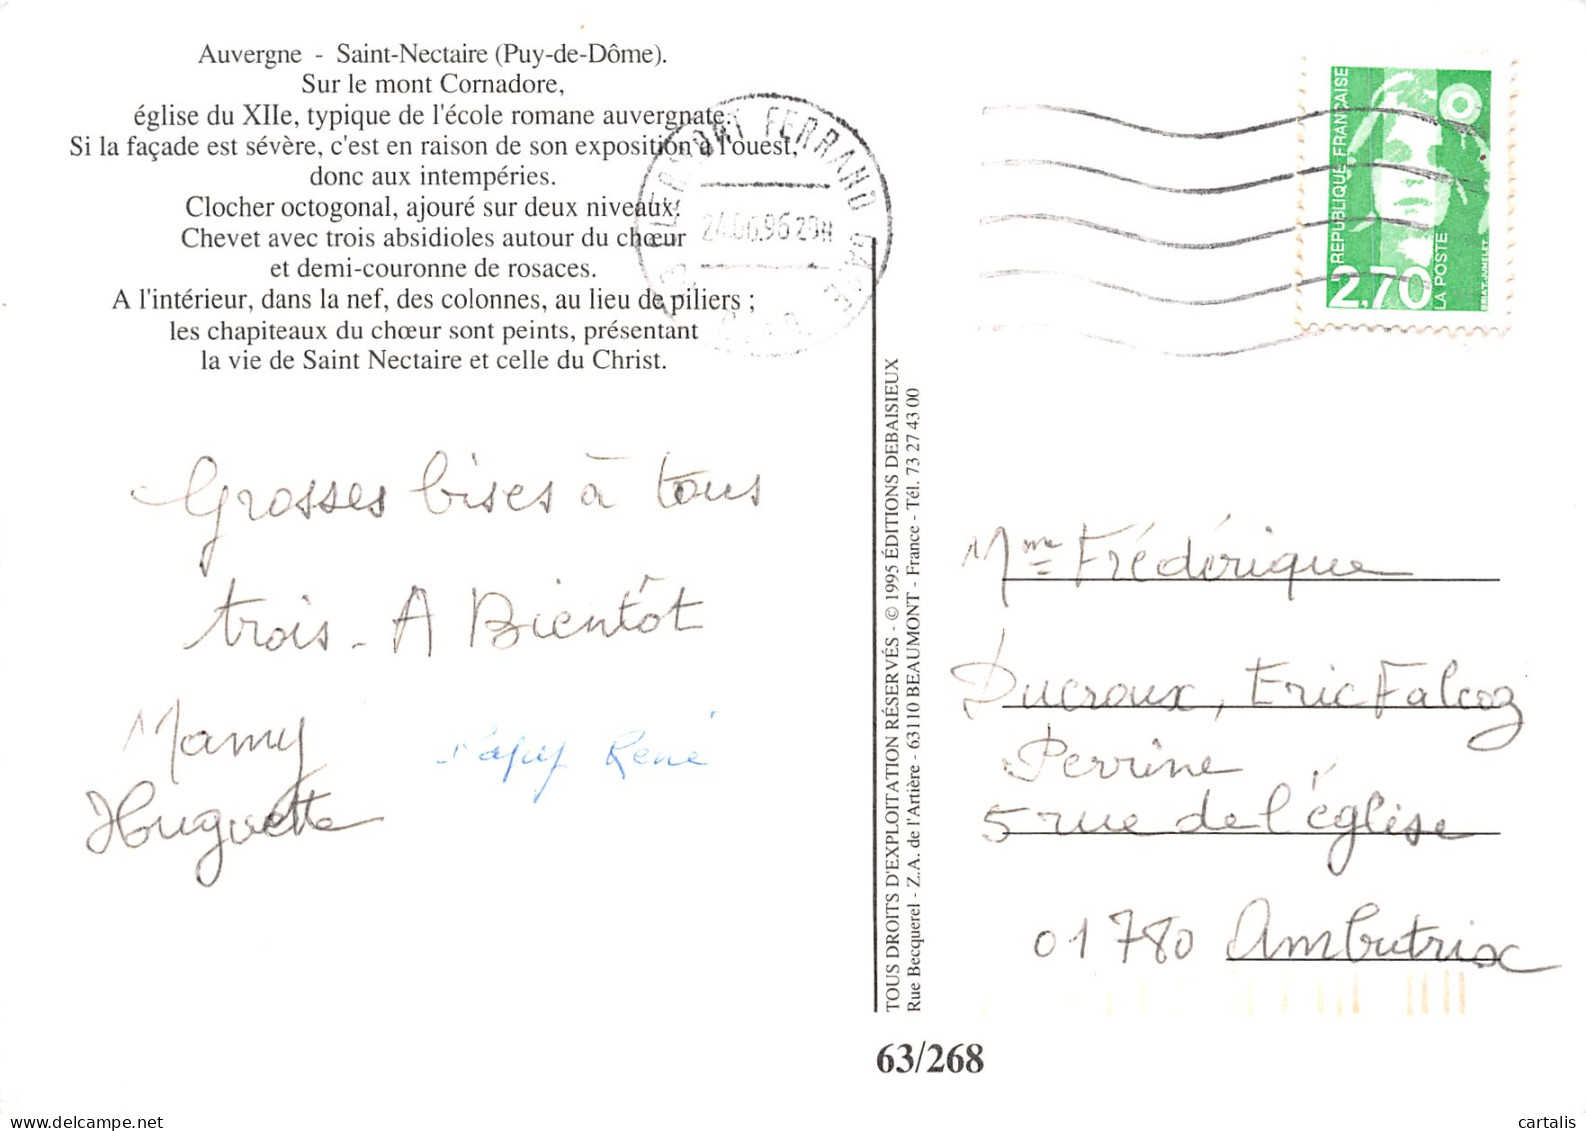 Auvergne - Saint-Nectaire (Puy-de-Dôme).
Sur le mont Cornadore,
église du XIIe, typique de l'école romane auvergnate.
Si la façade est sévère, c'est en raison de son exposition à l'ouest,
donc aux intempéries.
Clocher octogonal, ajouré sur deux niveaux.
Chevet avec trois absidioles autour du chœur
et demi-couronne de rosaces.
A l'intérieur, dans la nef, des colonnes, au lieu de piliers ;
les chapiteaux du chœur sont peints, présentant
la vie de Saint Nectaire et celle du Christ.
CLERMONT FERRAND GARE
24.06.96 20H
RÉPUBLIQUE FRANÇAISE
2,70
LA POSTE
0
Grosses bises à tous
trois - A Bientôt
Mamy
Huguette
Papy René
TOUS DROITS D'EXPLOITATION RÉSERVÉS - © 1995 ÉDITIONS DEBAISIEUX
Rue Becquerel - Z.A. de l'Artière - 63110 BEAUMONT - France - Tél. 73 27 43 00
Mme Frédérique
Ducroux, Eric Falcoz
Perrine
5 rue de l'église
01780 Ambutrix
63/268
cartalis